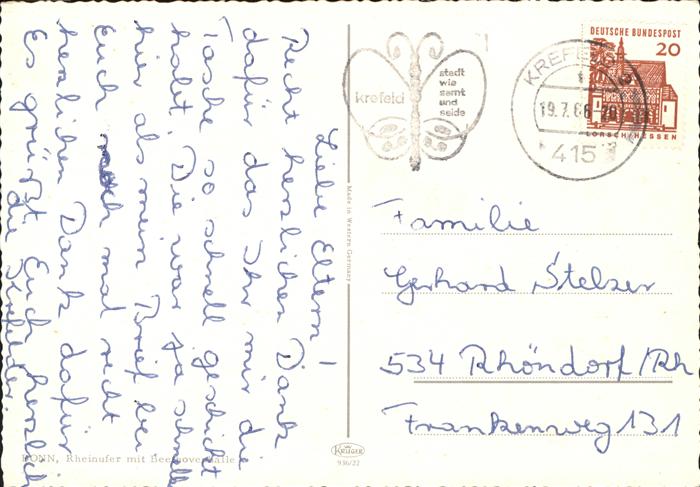 Liebe Eltern!
Recht herzlichen Dank
dafür das Ihr mir die
Tasche so schnell geschickt
habt. Die war ja schneller
hier als mein Brief bei
Euch. mal recht
herzlichen Dank dafür
Es grüßt Euch herzlich
die
BONN, Rheinufer mit Beethovenhalle
Made in Western Germany
KRÜGER
936/22
krefeld
stadt
wie
samt
und
seide
KREFELD
19.7.66-20
415
DEUTSCHE BUNDESPOST
20
LORSCH/HESSEN
Familie
Gerhard Stelzer
534 Rhöndorf/Rh
Frankenweg 131